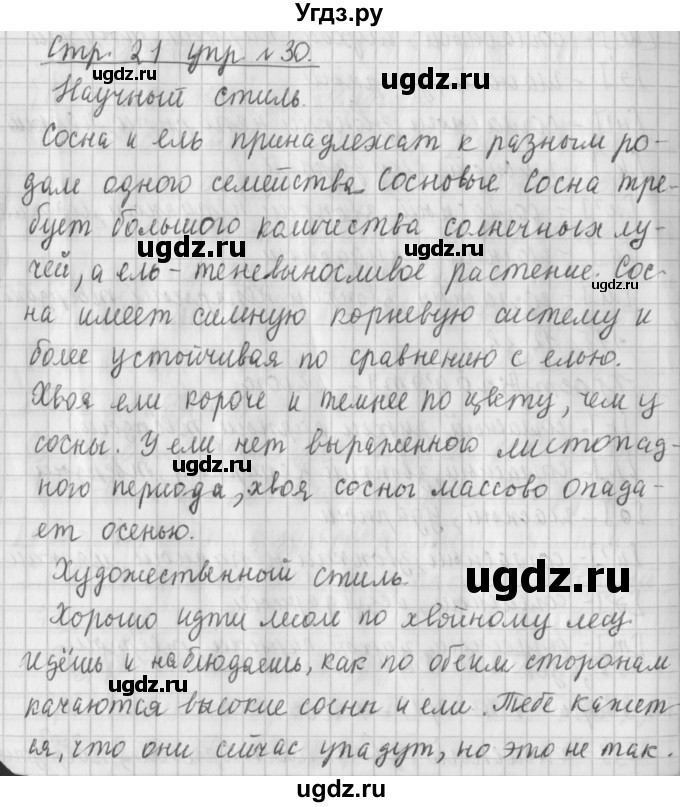 Угдз.ру
Стр. 21 упр. №30.
Научный стиль.
Сосна и ель принадлежат к разным ро-
дам одного семейства Сосновые. Сосна тре-
бует большого количества солнечных лу-
чей, а ель – теневыносливое растение. Сос-
на имеет сильную корневую систему и
более устойчивая по сравнению с елью.
Хвоя ели короче и темнее по цвету, чем у
сосны. У ели нет выраженного листопад-
ного периода, хвоя сосны массово опада-
ет осенью.
Художественный стиль.
Хорошо идти лесом по хвойному лесу.
Идёшь и наблюдаешь, как по обеим сторонам
качаются высокие сосны и ели. Тебе кажет-
ся, что они сейчас упадут, но это не так.
ugdz.ru
ugdz.ru
ugdz.ru
ugdz.ru
ugdz.ru
ugdz.ru
ugdz.ru
ugdz.ru
ugdz.ru
ugdz.ru
ugdz.ru
ugdz.ru